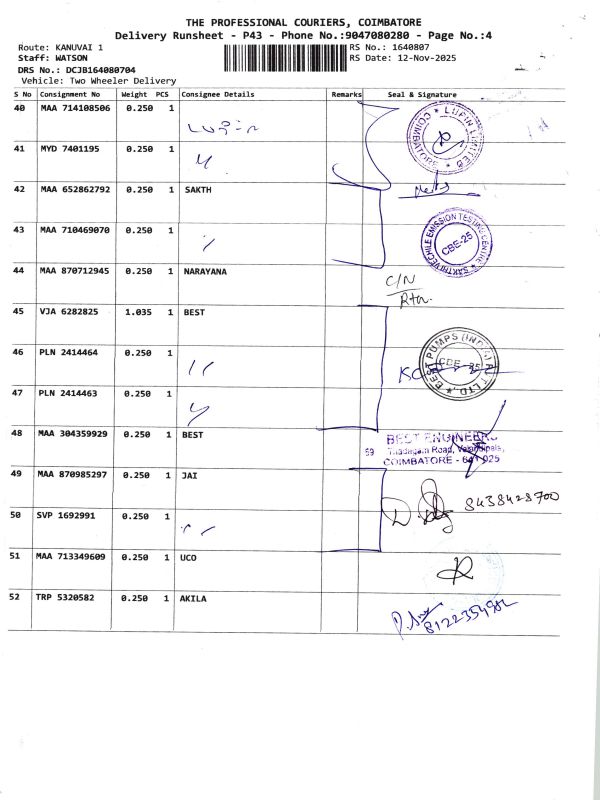 THE PROFESSIONAL COURIERS, COIMBATORE
Delivery Runsheet - P43 - Phone No.:9047080280 - Page No.:4
Route: KANUVAI 1
RS No.: 1640807
Staff: WATSON
RS Date: 12-Nov-2025
DRS No.: DCJB164080704
Vehicle: Two Wheeler Delivery
S No Consignment No Weight PCS Consignee Details Remarks Seal & Signature
40 MAA 714108506 0.250 1
Lupin
LUPIN LIMITED
COIMBATORE
41 MYD 7401195 0.250 1
42 MAA 652862792 0.250 1 SAKTH
43 MAA 710469070 0.250 1
SAKTHI VECHILE EMISSION TESTING CENTRE
CBE-25
44 MAA 870712945 0.250 1 NARAYANA
C/N
Rtn.
45 VJA 6282825 1.035 1 BEST
46 PLN 2414464 0.250 1
BEST PUMPS (INDIA) P LTD.
CBE - 25
47 PLN 2414463 0.250 1
48 MAA 304359929 0.250 1 BEST
BEST ENGINEERS
59 Thadagam Road,
COIMBATORE - 641 025
49 MAA 870985297 0.250 1 JAI
8438428700
50 SVP 1692991 0.250 1
51 MAA 713349609 0.250 1 UCO
52 TRP 5320582 0.250 1 AKILA
8122354982